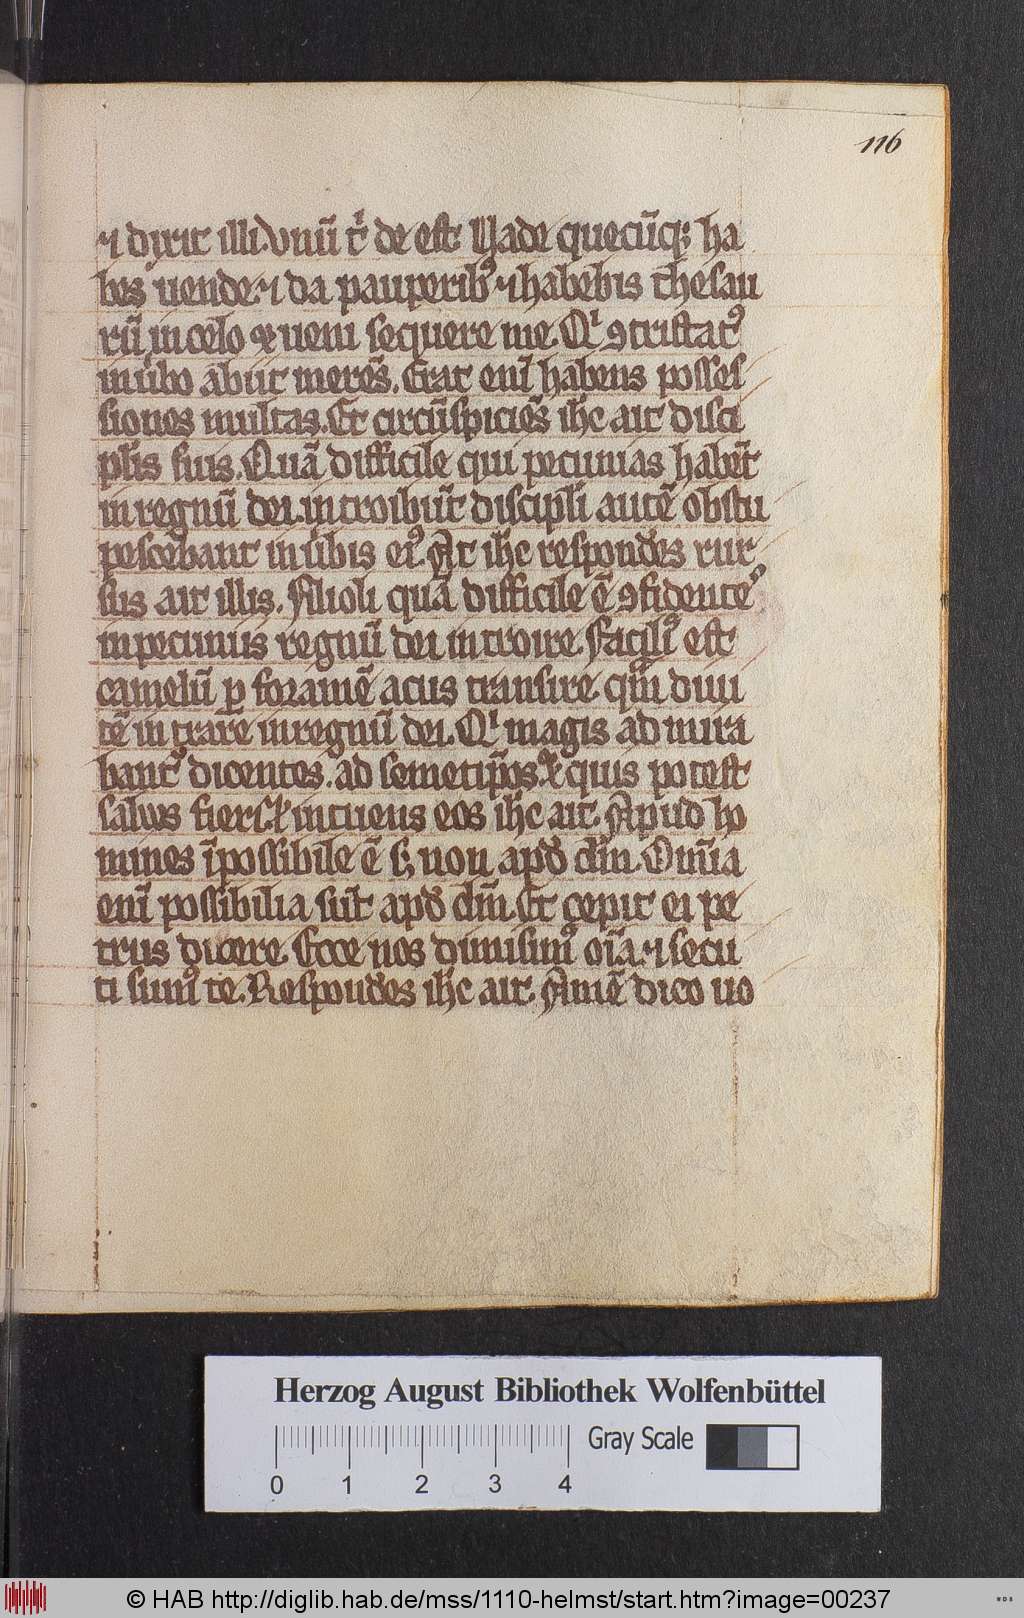 116
⁊ dixit illi. Vnū t̾ de est. Vade quecūq; ha
bes uende. ⁊ da pauperibꝰ ⁊ habebis thesau
rū in celo ⁊ ueni sequere me. Qͥ ꝯtristatꝰ
in űbo abiit merēs. Erat enī habens posses
siones multas. Et circūspiciēs ih̄c ait disci
pl̄is suis. Quā difficile qui pecunias habēt
in regnū dei. introibūt discipl̄i autē obstu
pescebant in űbis eiꝰ. At ih̄c respondēs rur
sus ait illis. Filioli quā difficile ē ꝯfidentes
in pecuniis regnū dei introire. Faciliꝰ est
camelū ꝑ foramē acus transire. qͣm diui
tē intrare in regnū dei. Qͥ magis ad mira
bantͬ dicentes. ad semetip̄os. Et quis potest
saluus fieri. Et intuens eos ih̄c ait. Apud ho
mines īpossibile ē sꝫ non apd̄ dm̄. Om̄ia
enī possibilia sūt apd̄ dm̄. Et cepit ei pe
trus dicere. Ecce nos dimisimꝰ oīa. ⁊ secu
ti sumꝰ te. Respondēs ih̄c ait. Amē dico uo
Herzog August Bibliothek Wolfenbüttel
0 1 2 3 4 Gray Scale
© HAB http://diglib.hab.de/mss/1110-helmst/start.htm?image=00237